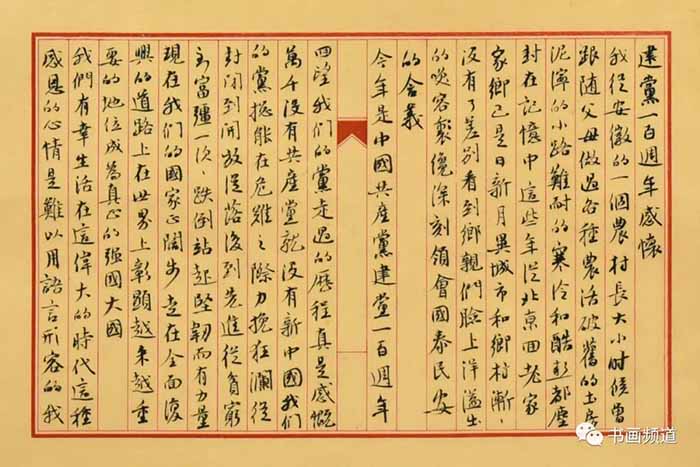 建黨一百週年感懷
我從安徽的一個農村長大小时候曾
跟隨父母做過各種農活破舊的土房
泥濘的小路難耐的寒冷和酷熱都塵
封在記憶中這些年從北京回老家
家鄉已是日新月異城市和鄉村漸、
没有了差别看到鄉親們臉上洋溢出
的笑容製儷深刻領會國泰民安
的含義
今年是中國共產黨建党一百週年
回望我們的黨走過的歷程真是感慨
萬千没有共產黨就没有新中國我们
的黨總能在危難之際力挽狂瀾從
封闭到開放從落後到先進從貧窮
到富疆一次、跌倒站起堅韌而有力量
現在我们的國家正闊步走在全面復
興的道路上在世界上彰顯越来越重
要的地位成為真正的强國大國
我們有幸生活在這偉大的時代這種
感恩的心情是難以用語言形容的我
书画频道